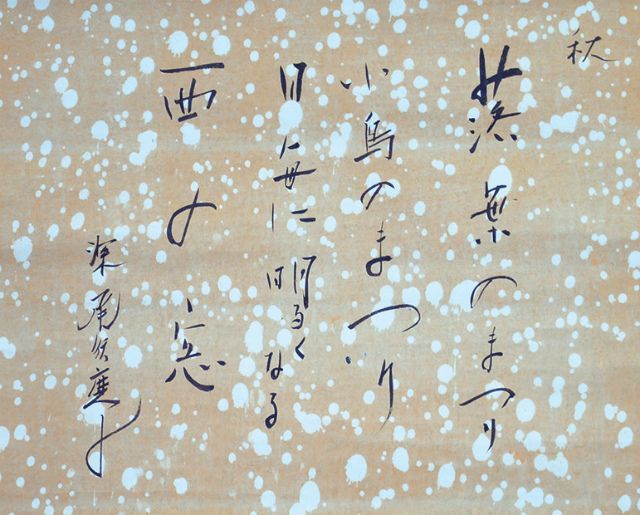 秋
落葉のまつり
小鳥のまつり
日毎に明るくなる
西の窓
深尾須磨子